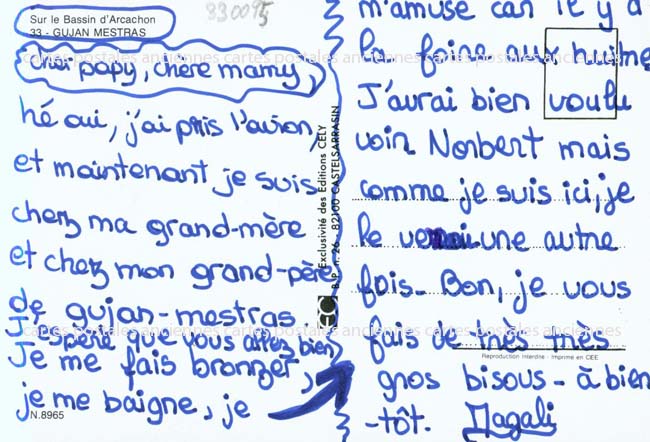 330095
Sur le Bassin d'Arcachon
33 - GUJAN MESTRAS
cher papy, chère mamy,
hé oui, j'ai pris l'avion,
et maintenant je suis
cherz ma grand-mère
et chez mon grand-père
de gujan-mestras.
J'espère que vous allez bien
Je me fais bronzer,
je me baigne, je
N.8965
Exclusivité des Editions CELY
B.P. n. 26 - 82100 CASTELSARRASIN
m'amuse car il y a
la foire aux huitres
J'aurai bien voulu
voir Norbert mais
comme je suis ici, je
le verrai une autre
fois. Bon, je vous
fais de très très
Reproduction Interdite - Imprimé en CEE
gros bisous - à bien
-tôt. Magali
cartes postales anciennes cartes postales anciennes cartes postales anciennes
cartes postales anciennes cartes postales anciennes cartes postales anciennes
cartes postales anciennes cartes postales anciennes cartes postales anciennes